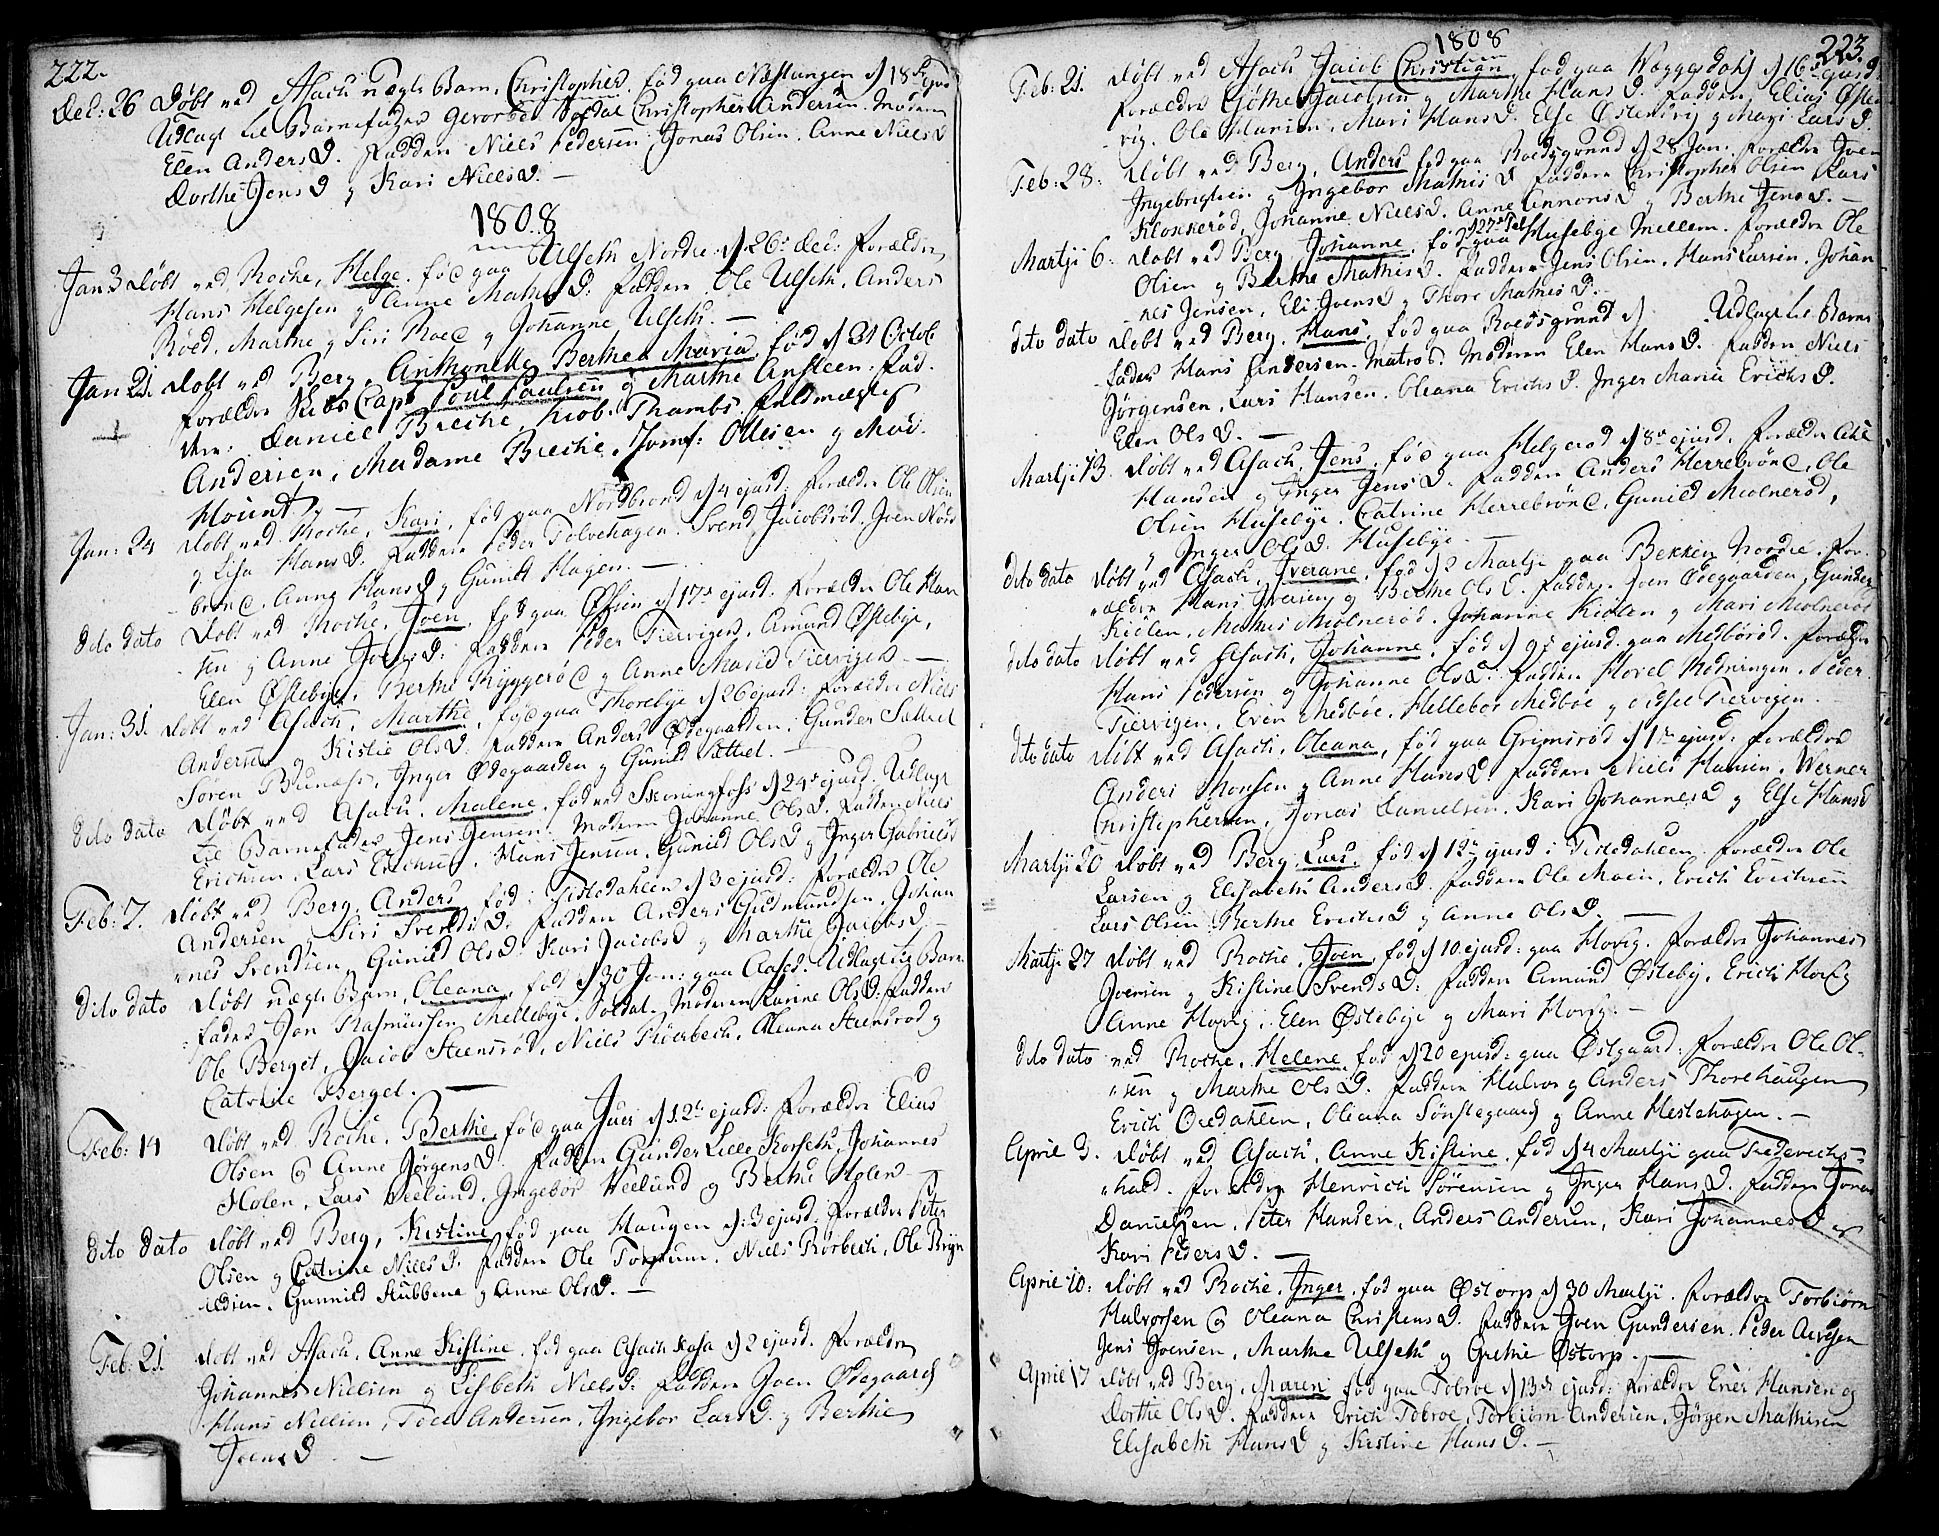 222.
Dec: 26 Døbt ved Asach uægte Barn, Christopher, fød paa Fæstungen d 18
Udlagt til Barnefader Christopher Andersen. Moderen
Elen AndersD. Faddere Niels Pedersen, Jonas Olsen, Anne NielsD
Dorthe JensD og Kari NielsD. —
1808
Jan 3 Døbt ved Rocke, Helge, fød paa Ulseth Nordre d 26 Dec: Forældre
Hans Helgesen og Anne MathisD: Faddere Ole Ulseth, Anders
Røed, Marthe og Siri Røed og Johanne Ulseth. —
Jan 21. Døbt ved Berg, Anthonette Berthe Maria fød d 31 Octob.
Forældre Skibs Capt Poul Paulsen og Marthe Ansteen. Fad-
dere: Daniel Breche, Kiøb. Thambs, Fuldmægtig
Andersen, Madame Breche, Jomf: Ollesen og Mad.
Mount. —
Jan: 24 Døbt ved Rocke, Kari, fød paa Nordbrønd d 4 ejusd: Forældre Ole Olsen
og Lisa HansD. Faddere Peder Tolvehagen, Svend Jacobsrød, Joen Nord
brønd, Anne HansD og Gunild Hagen. —
dito dato Døbt ved Rocke, Joen, fød paa Øsien d 17 ejusd. Forældre Ole Han
sen og Anne JoensD: Faddere Peder Tiervigen, Amund Østebye,
Elen Østebye, Berthe Ryggerød og Anne Maria Tiervigen. —
Jan: 31. Døbt ved Asach, Marthe, fød paa Thorebye d 26 ejusd: Forældre Niels
Andersen og Kistie OlsD: Faddere Anders Ødegaarden, Gunder Sættrel
Søren Buenæss, Inger Ødegaarden og Gunild Sættrel. —
dito dato Døbt ved Asach, Malene, fød ved Skoningfoss d 24 ejusd. Udlagt
til Barnefader Jens Jensen. Moderen Johanne OlsD. Faddere Niels
Erichsen, Lars Erichsen, Hans Jensen, Gunild OlsD og Inger GabrielsD
Feb: 7. Døbt ved Berg, Anders, fød i Tistedahlen d 3 ejusd: Forældre Ole
Andersen og Siri SvendsD. Faddere Anders Gudmundsen, Johan
nes Svendsen, Gunild OlsD. Kari JacobsD og Marthe JacobsD —
dito dato Døbt uægte Barn, Oleana, fød d 30 Jan: paa Aased. Udlagt til Barne
fader Jon Rasmussen Mellebye. Soldat. Moderen Karine OlsD: Faddere
Ole Berget, Jacob Steensrød, Niels Rørbech, Oleana Steensrød og
Catrine Berget. —
Feb: 14 Døbt ved Rocke, Berthe, fød paa Juer d 12te ejusd: Forældre Elias
Olsen og Anne JørgensD. Faddere Gunder Lille Korseth, Johannes
Holen, Lars Veelund, Ingebor Veelund og Berthe Holen. —
dito dato Døbt ved Berg, Kistine fød paa Haugen d 3 ejusd: Forældre Peter
Olsen og Catrine NielsD. Faddere Ole Torpum, Niels Rørbech, Ole Bryn
ildsen, Gunnild Stubbene og Anne OlsD. —
Feb: 21. Døbt ved Asach, Anne Kistine, fød paa Asach Kasa d 2 ejusd. Forældre
Johannes Nielsen og Lisbeth NielsD: Faddere Joen Ødegaard
Hans Nielsen, Toer Andersen, Ingebor LarsD. og Berthe
JoensD —
1808
223
Feb: 21. Døbt ved Asach Jacob Christian, fød paa Næggesdahl d 16 ejusd
Forældre Gøthe Jacobsen og Marthe HansD. Faddere Elias Østen
vig. Ole Hansen, Mari HansD. Else Østenvig og Mari LarsD.
Feb: 28. Døbt ved Berg, Anders fød paa Roedsgrund d 28 Jan. Forældre Joen
Ingebrigtsen og Ingebor MathisD Faddere Christopher Olsen Lars
Klokkerød, Johanne NielsD. Anne AmmonsD og Berthe JensD. —
Martji 6. Døbt ved Berg Johanne, fød d 27 Feb paa Husebye Mellem. Forældre Ole
Olsen og Berthe MathisD. Faddere Jens Olsen, Hans Larsen, Johan
nes Jensen, Eli JoensD og Thore MathisD.
dito dato Døbt ved Berg. Hans, fød paa Roedsgrund d Udlagt til Barne
fader Hans Andersen. Matros. Moderen Elen HansD. Faddere Niels
Jørgensen, Lars Hansen, Oleana ErichsD. Inger Maria ErichsD.
Elen OlsD. —
Martji 13. Døbt ved Asach, Jens, fød paa Helgerød d 8 ejusd. Forældre Ole
Hansen og Inger JensD. Faddere Anders Herrebrønd, Ole
Olsen Husebye. Catrine Herrebrønd, Gunild Molnerød,
og Inger OlsD. Husebye. —
dito dato Døbt ved Asach, Iverane, fød d 2 Martji paa Bekken Nordre. For-
ældre Hans Iversen og Berthe OlsD. Faddere Joen Ødegaarden, Gunder
Kiølen, Mathis Molnerød. Johanne Kiølen og Mari Molnerød
dito dato Døbt ved Asach, Johanne, fød d 9 ejusd. paa Medbørød. Forældre
Hans Pedersen og Johanne OlsD. Faddere Hovel Rødningen, Peder
Tiervigen, Even Medbøe, Hellebor Medbøe og Sidsel Tiervigen.
dito dato Døbt ved Asach, Oleana, fød paa Grimsrød d 1 ejusd: Forældre
Anders Monsen og Anne HansD. Faddere Niels Hansen, Werner
Christophersen, Jonas Danielsen, Kari JohannesD og Else HansD
Martji 20 Døbt ved Berg, Lars, fød d 12 ejusd i Tistedahlen. Forældre Ole
Larsen og Elisabeth AndersD. Faddere Ole Moen, Erich Erichsen
Lars Olsen Berthe ErichsD og Anne OlsD. —
Martji 27 Døbt ved Rocke, Joen, fød d 10 ejusd: paa Hovig. Forældre Johannes
Joensen og Kistine SvendsD: Faddere Amund Østeby, Erich Hovig
Anne Hovig, Elen Østebye og Mari Hovig. —
dito dato ved Rocke, Helene, fød d 20 ejusd: paa Østgaard: Forældre Ole Ol-
sen og Marthe OlsD. Faddere Halvor og Anders Thorehaugen
Erich Ocedahlen, Oleana Sønstegaard og Anne Hestehagen. —
April 3. Døbt ved Asach, Anne Kistine, fød d 4 Martji paa Friderichs-
hald. Forældre Henrich Sørensen og Inger HansD. Faddere Jonas
Danielsen, Peter Hansen, Anders Andersen, Kari JohannesD og
Kari PedersD. —
April 10: Døbt ved Rocke, Inger, fød paa Østorp d 30 Martji. Forældre Torbiørn
Halvorsen og Oleana ChristensD. Faddere Joen Gundersen, Peder
Jens Joensen, Marthe Ulseth og Grethe Østorp. —
April 17 Døbt ved Berg, Maren, fød paa Tobroe d 13 ejusd: Forældre Ener Hansen og
Dorthe OlsD. Faddere Erich Tobroe, Torbiørn Andersen, Jørgen Mathisen
Elisabeth HansD og Kistine HansD. —